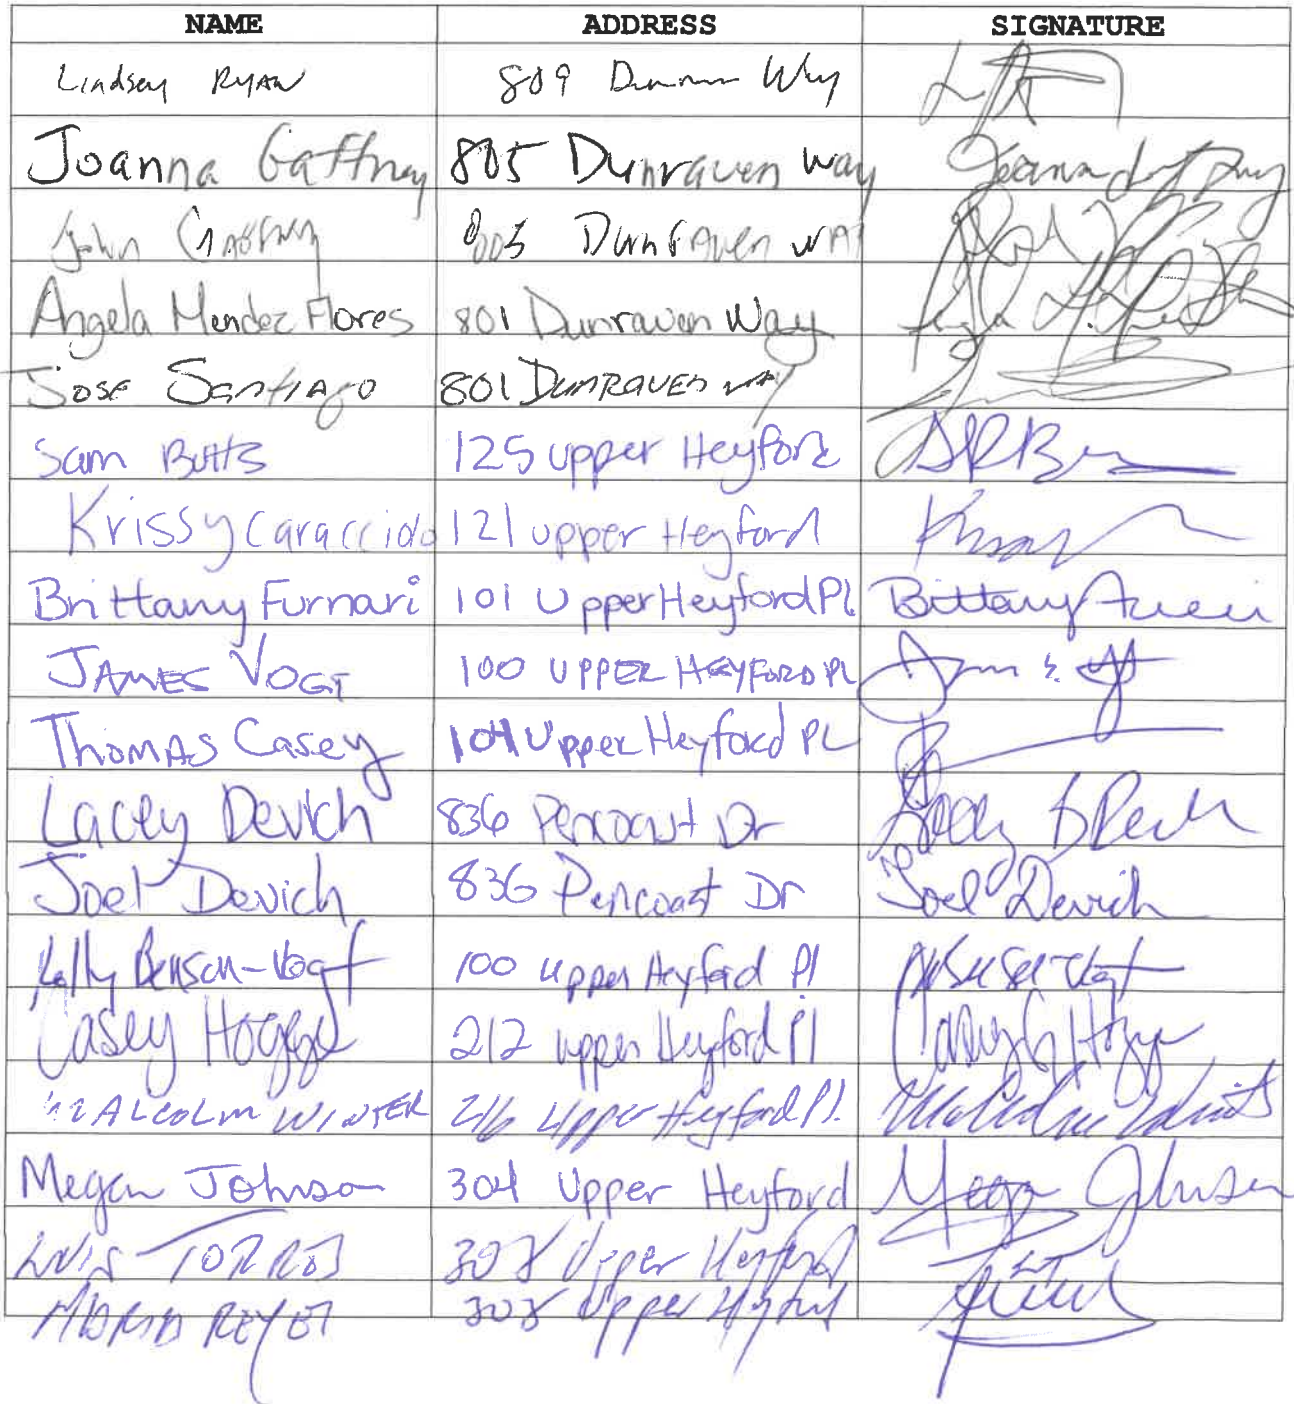 NAME ADDRESS SIGNATURE
Lindsey Ryan 809 Way
Joanna Gaffney 805 Dunraven way Joanna
John Gaffney 805 Dunraven WAY
Angela Mendez Flores 801 Dunraven Way Angela
Jose Santiago 801 DUNRAVEN WAY
Sam Butts 125 upper Heyford
Krissy Caracciolo 121 upper Heyford
Brittany Furnari 101 Upper Heyford PL Brittany
JAMES VOGT 100 UPPER HEYFORD PL
Thomas Casey 104 Upper Heyford PL
Lacey Devich 836 Pencoast Dr Lacey
Joel Devich 836 Pencoast Dr Joel Devich
Kelly Benson-Vogt 100 Upper Heyford Pl
Casey Hogge 212 upper Heyford Pl Casey Hogge
MALCOLM WINTER 216 Upper Heyford Pl. Malcolm
Megan Johnson 304 Upper Heyford Megan Johnson
308 Upper Heyford
308 Upper Heyford